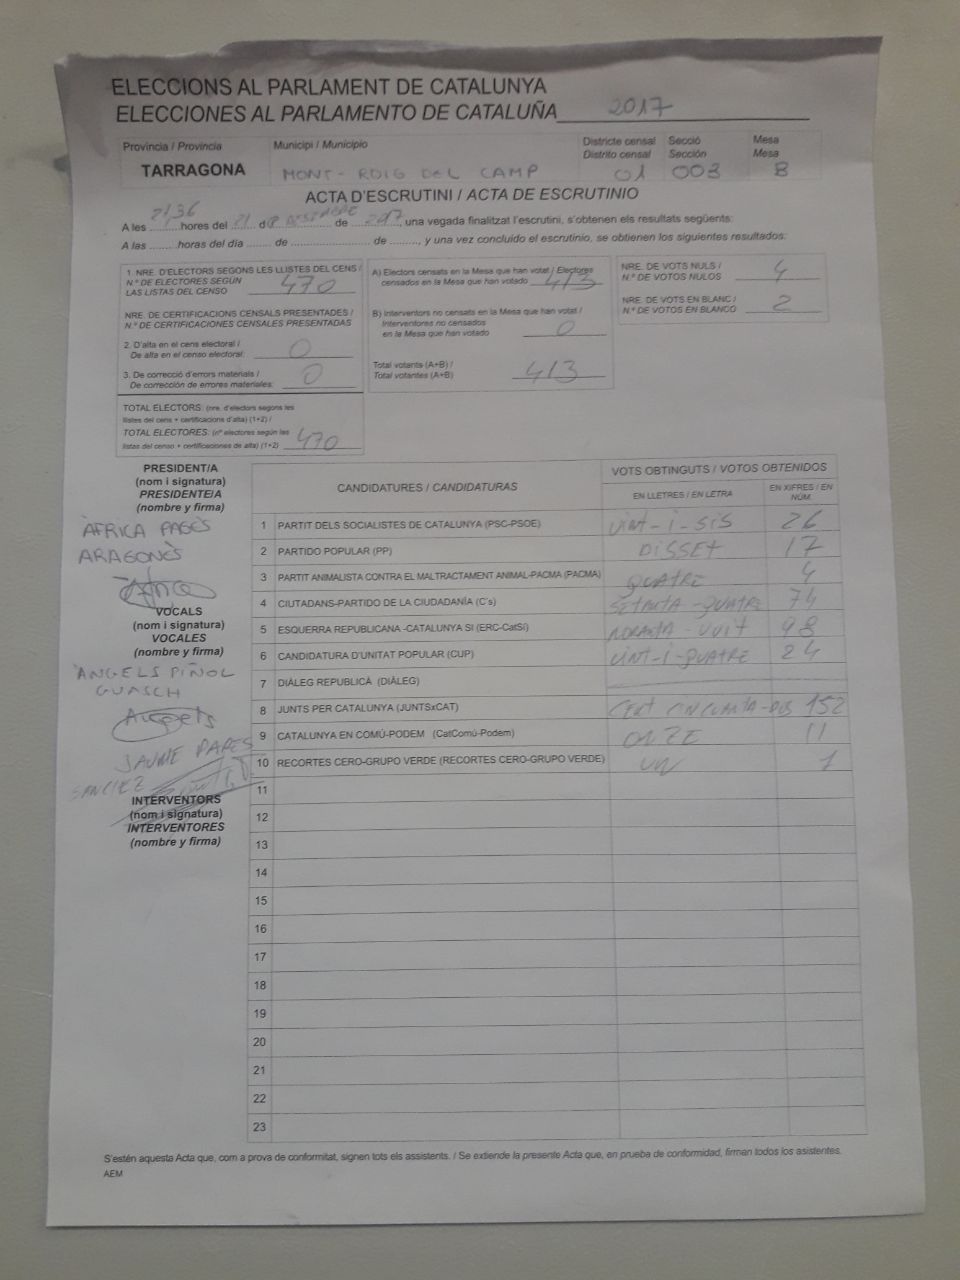 ELECCIONS AL PARLAMENT DE CATALUNYA
ELECCIONES AL PARLAMENTO DE CATALUÑA 2017
Província / Provincia Municipi / Municipio Districte censal Secció Mesa
Distrito censal Sección Mesa
TARRAGONA MONT-ROIG DEL CAMP 01 003 B
ACTA D'ESCRUTINI / ACTA DE ESCRUTINIO
A les 21,36 hores del 21 de DESEMBRE de 2017, una vegada finalitzat l'escrutini, s'obtenen els resultats següents:
A las ........ horas del día ....... de ...................... de ........, y una vez concluido el escrutinio, se obtienen los siguientes resultados:
1. NRE. D'ELECTORS SEGONS LES LLISTES DEL CENS /
N.º DE ELECTORES SEGÚN
LAS LISTAS DEL CENSO 470
NRE. DE CERTIFICACIONS CENSALS PRESENTADES /
N.º DE CERTIFICACIONES CENSALES PRESENTADAS
2. D'alta en el cens electoral /
De alta en el censo electoral: 0
3. De correcció d'errors materials /
De corrección de errores materiales: 0
TOTAL ELECTORS: (nre. d'electors segons les
llistes del cens + certificacions d'alta) (1+2) /
TOTAL ELECTORES: (nº electores según las
listas del censo + certificaciones de alta) (1+2) 470
A) Electors censats en la Mesa que han votat / Electores
censados en la Mesa que han votado 413
B) Interventors no censats en la Mesa que han votat /
Interventores no censados
en la Mesa que han votado 0
Total votants (A+B) /
Total votantes (A+B) 413
NRE. DE VOTS NULS /
N.º DE VOTOS NULOS 4
NRE. DE VOTS EN BLANC /
N.º DE VOTOS EN BLANCO 2
PRESIDENT/A
(nom i signatura)
PRESIDENTE/A
(nombre y firma)
ÀFRICA PAGÈS
ARAGONÈS
VOCALS
(nom i signatura)
VOCALES
(nombre y firma)
ÀNGELS PIÑOL
GUASCH
Àngels
JAUME PARES
INTERVENTORS
(nom i signatura)
INTERVENTORES
(nombre y firma)
CANDIDATURES / CANDIDATURAS VOTS OBTINGUTS / VOTOS OBTENIDOS
EN LLETRES / EN LETRA EN XIFRES / EN NÚM.
1 PARTIT DELS SOCIALISTES DE CATALUNYA (PSC-PSOE) VINT-I-SIS 26
2 PARTIDO POPULAR (PP) DISSET 17
3 PARTIT ANIMALISTA CONTRA EL MALTRACTAMENT ANIMAL-PACMA (PACMA) QUATRE 4
4 CIUTADANS-PARTIDO DE LA CIUDADANÍA (C's) SETANTA-QUATRE 74
5 ESQUERRA REPUBLICANA -CATALUNYA SÍ (ERC-CatSí) NORANTA-VUIT 98
6 CANDIDATURA D'UNITAT POPULAR (CUP) VINT-I-QUATRE 24
7 DIÀLEG REPUBLICÀ (DIÀLEG)
8 JUNTS PER CATALUNYA (JUNTSxCAT) CENT CINCUANTA-DOS 152
9 CATALUNYA EN COMÚ-PODEM (CatComú-Podem) ONZE 11
10 RECORTES CERO-GRUPO VERDE (RECORTES CERO-GRUPO VERDE) UN 1
11
12
13
14
15
16
17
18
19
20
21
22
23
S'estén aquesta Acta que, com a prova de conformitat, signen tots els assistents. / Se extiende la presente Acta que, en prueba de conformidad, firman todos los asistentes.
AEM